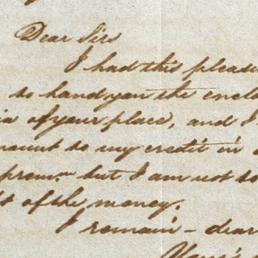 Dear Sir
I had this pleasu
to hand you the enclo
of your place, and I
mount to my credit in
prem.m but I am not so
t of the money.
I remain - dear
Your's